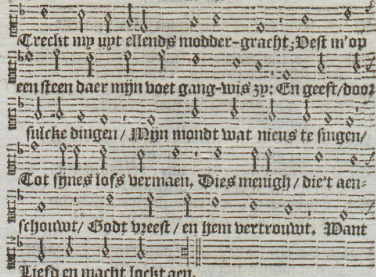 Treckt my uyt ellends modder-gracht; Vest m'op
een steen daer mijn voet gang-wis zy: En geeft/door
sulcke dingen / Mijn mondt wat nieus te singen/
Tot synes lofs vermaen. Dies menigh / die't aen-
schouwt/ Godt vreest / en hem vertrouwt. Want
Liefd en macht lockt aen.